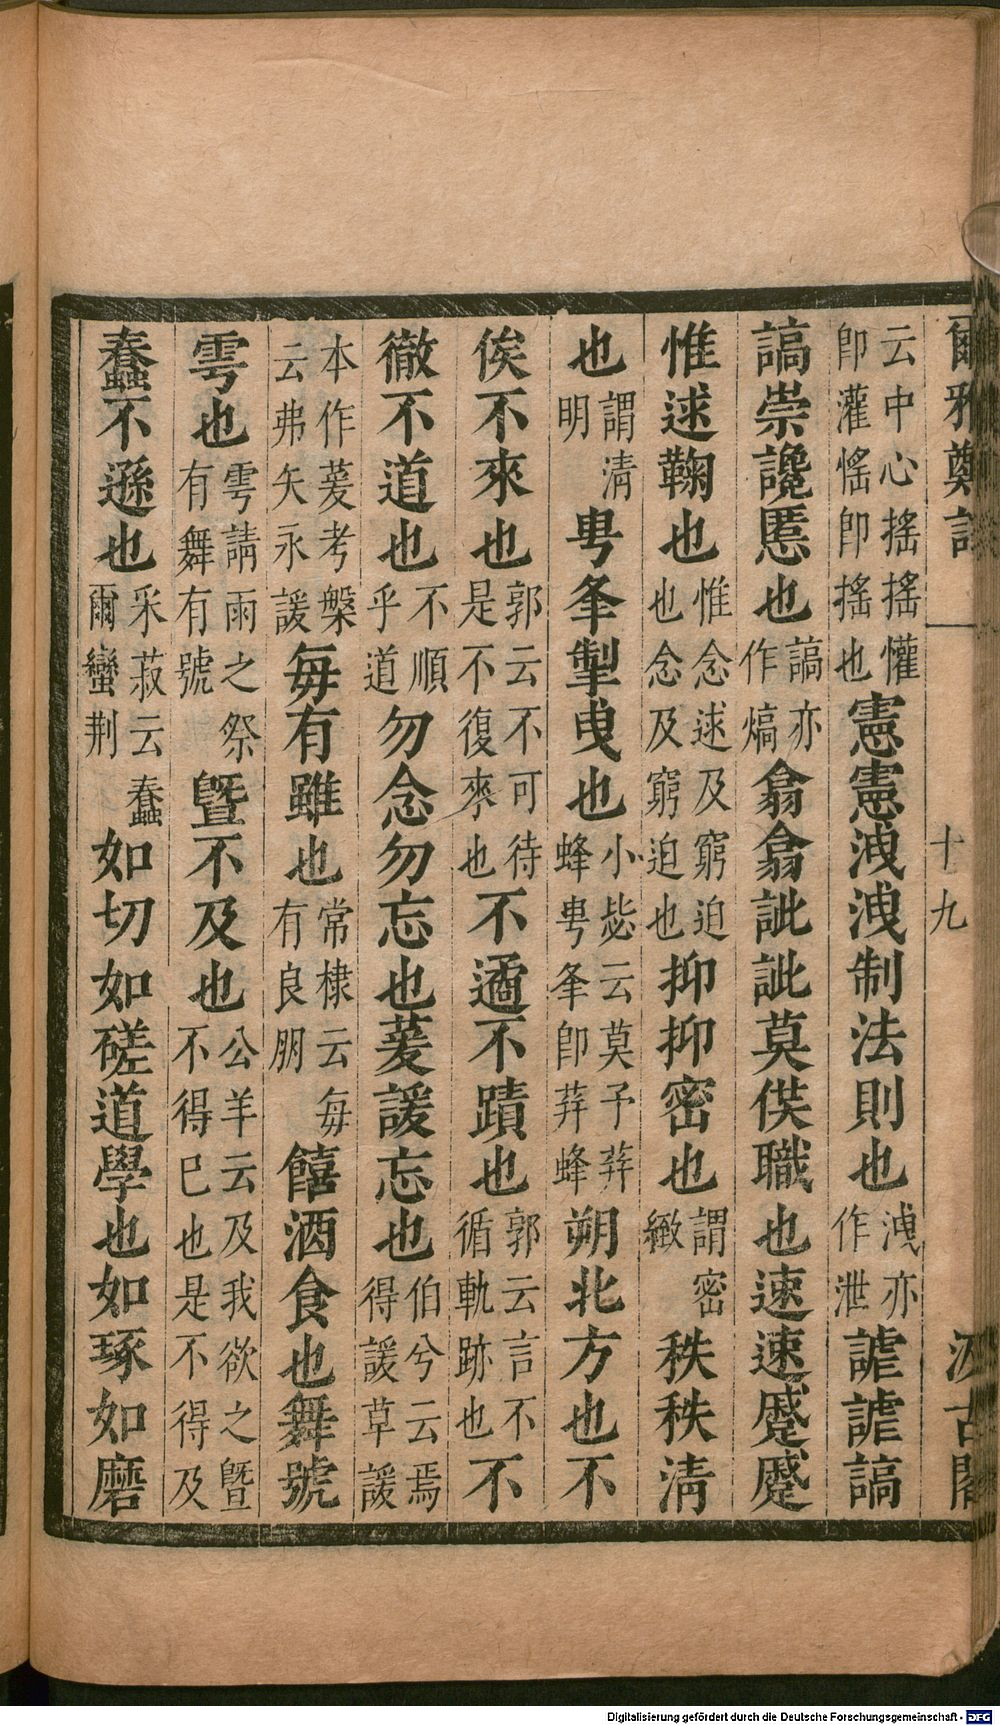 爾雅鄭註 一 十九 汲古閣
云中心搖搖懽即灌愮即搖也憲憲洩洩制法則也洩亦作泄謔謔謞
謞崇讒慝也謞亦作熇翕翕訿訿莫供職也速速蹙蹙
惟逑鞫也惟念逑及窮迫也念及窮迫也抑抑密也謂密緻秩秩清
也謂清明甹夆掣曳也小毖云莫予荓蜂甹夆即荓蜂朔北方也不
俟不來也郭云不可待是不復來也不遹不蹟也郭云言不循軌跡也不
徹不道也不順乎道勿念勿忘也萲諼忘也伯兮云焉得諼草諼
本作萲考槃云弗矢永諼每有雖也常棣云每有良朋饎酒食也舞號
雩也雩請雨之祭有舞有號暨不及也公羊云及我欲之暨不得已也是不得及
蠢不遜也采菽云蠢爾蠻荆如切如磋道學也如琢如磨
Digitalisierung gefördert durch die Deutsche Forschungsgemeinschaft - DFG